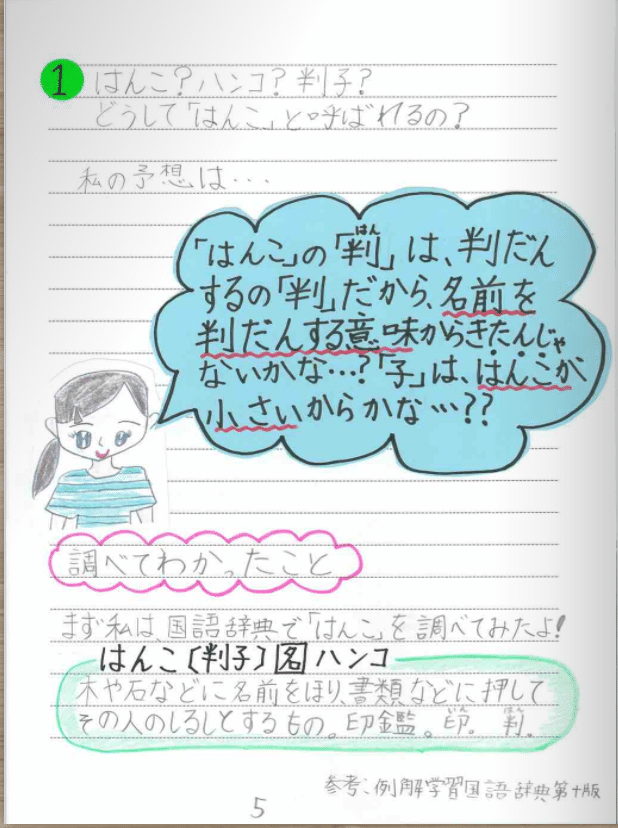 1 はんこ?ハンコ?判子?
どうして「はんこ」と呼ばれるの?
私の予想は…
「はんこ」の「判」は、判だん
はん
するの「判」だから、名前を
判だんする意味からきたんじゃ
ないかな…?「子」は、はんこが
小さいからかな…??
調べてわかったこと
まず私は、国語辞典で「はんこ」を調べてみたよ!
はんこ〔判子〕名 ハンコ
木や石などに名前をほり、書類などに押して
その人のしるしとするもの。印鑑。印。判。
いん はん
参考:例解学習国語辞典第十版
5